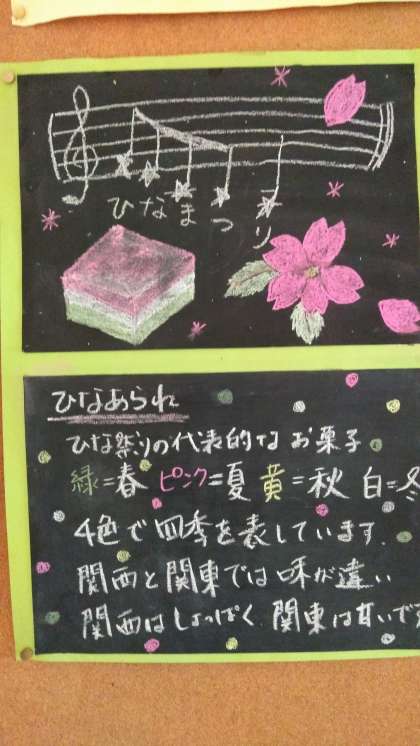 ひなまつり
ひなあられ
ひな祭りの代表的なお菓子
緑=春 ピンク=夏 黄=秋 白=冬
4色で四季を表しています.
関西と関東では味が違い
関西はしょっぱく 関東は甘いで